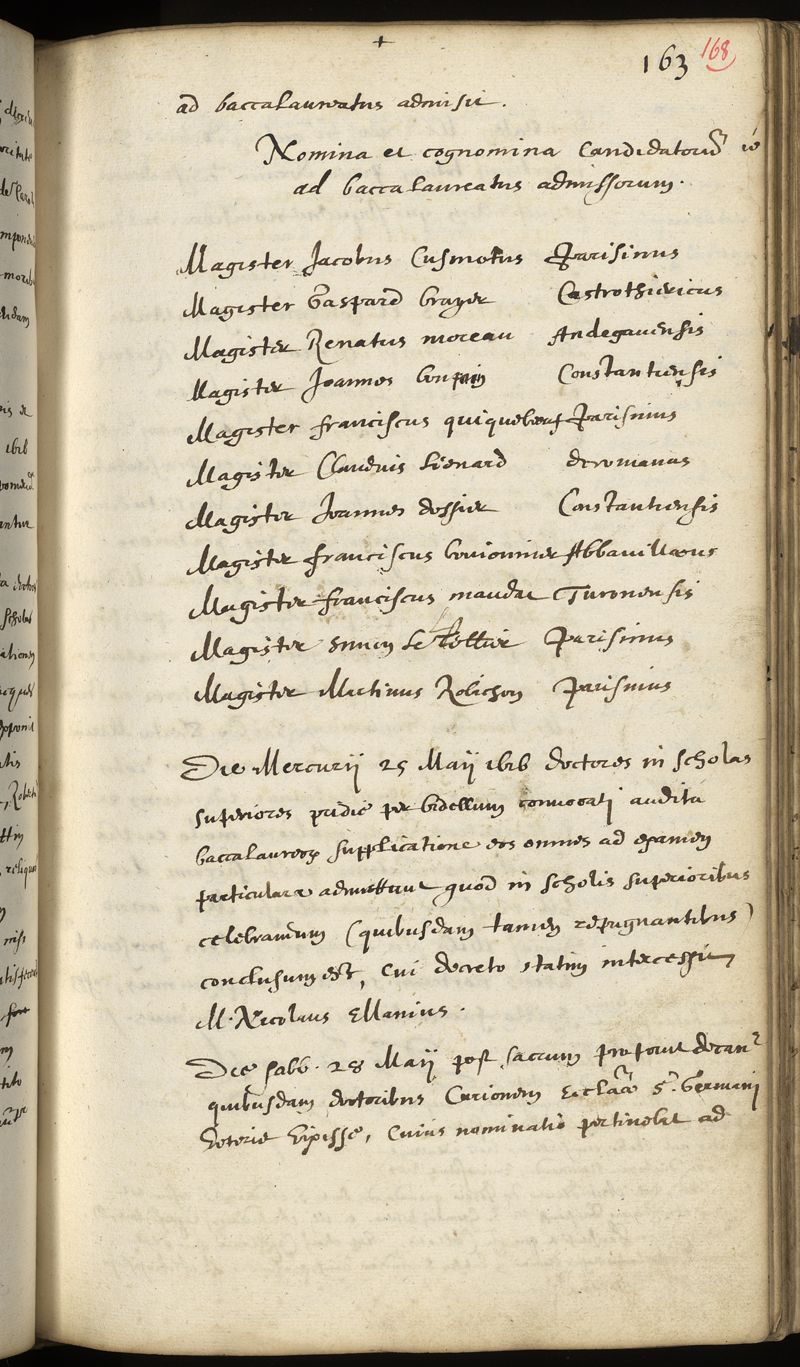 163 168
ad baccalaureatus admisit.
Nomina et cognomina Candidatorū
ad baccalaureatus admissorum.
Magister Jacobus Cusmotus Parisinus
Magister Gaspard brayer Castrothiericus
Magister Renatus moreau Andegauensis
Magister Joannes Constantiensis
Magister franciscus quiquebeuf Parisinus
Magister Claudius Lienard
Magister Joannes dossier Constantiensis
Magister franciscus bouionnier Abbauillaeus
Magister franciscus mandat Turonensis
Magister Simon Le Tellier Parisinus
Magister Martinus Robichon Parisinus
Die Mercurij 25 Maij 1616 doctores in scholas
superiores pridie per bidellum conuocati audita
baccalaureor supplicatione eos omnes ad examen
particulare admittunt quod in scholis superioribus
celebrandum (quibusdam tamen repugnantibus)
conclusum est, Cui decreto statim intercessit
M. Nicolaus Ellanius.
Die sabb. 28 Maij post sacrum proposuit decan9
quibusdam doctoribus Curionem S. Germani
veteris , Cuius nominatio pertinebat ad